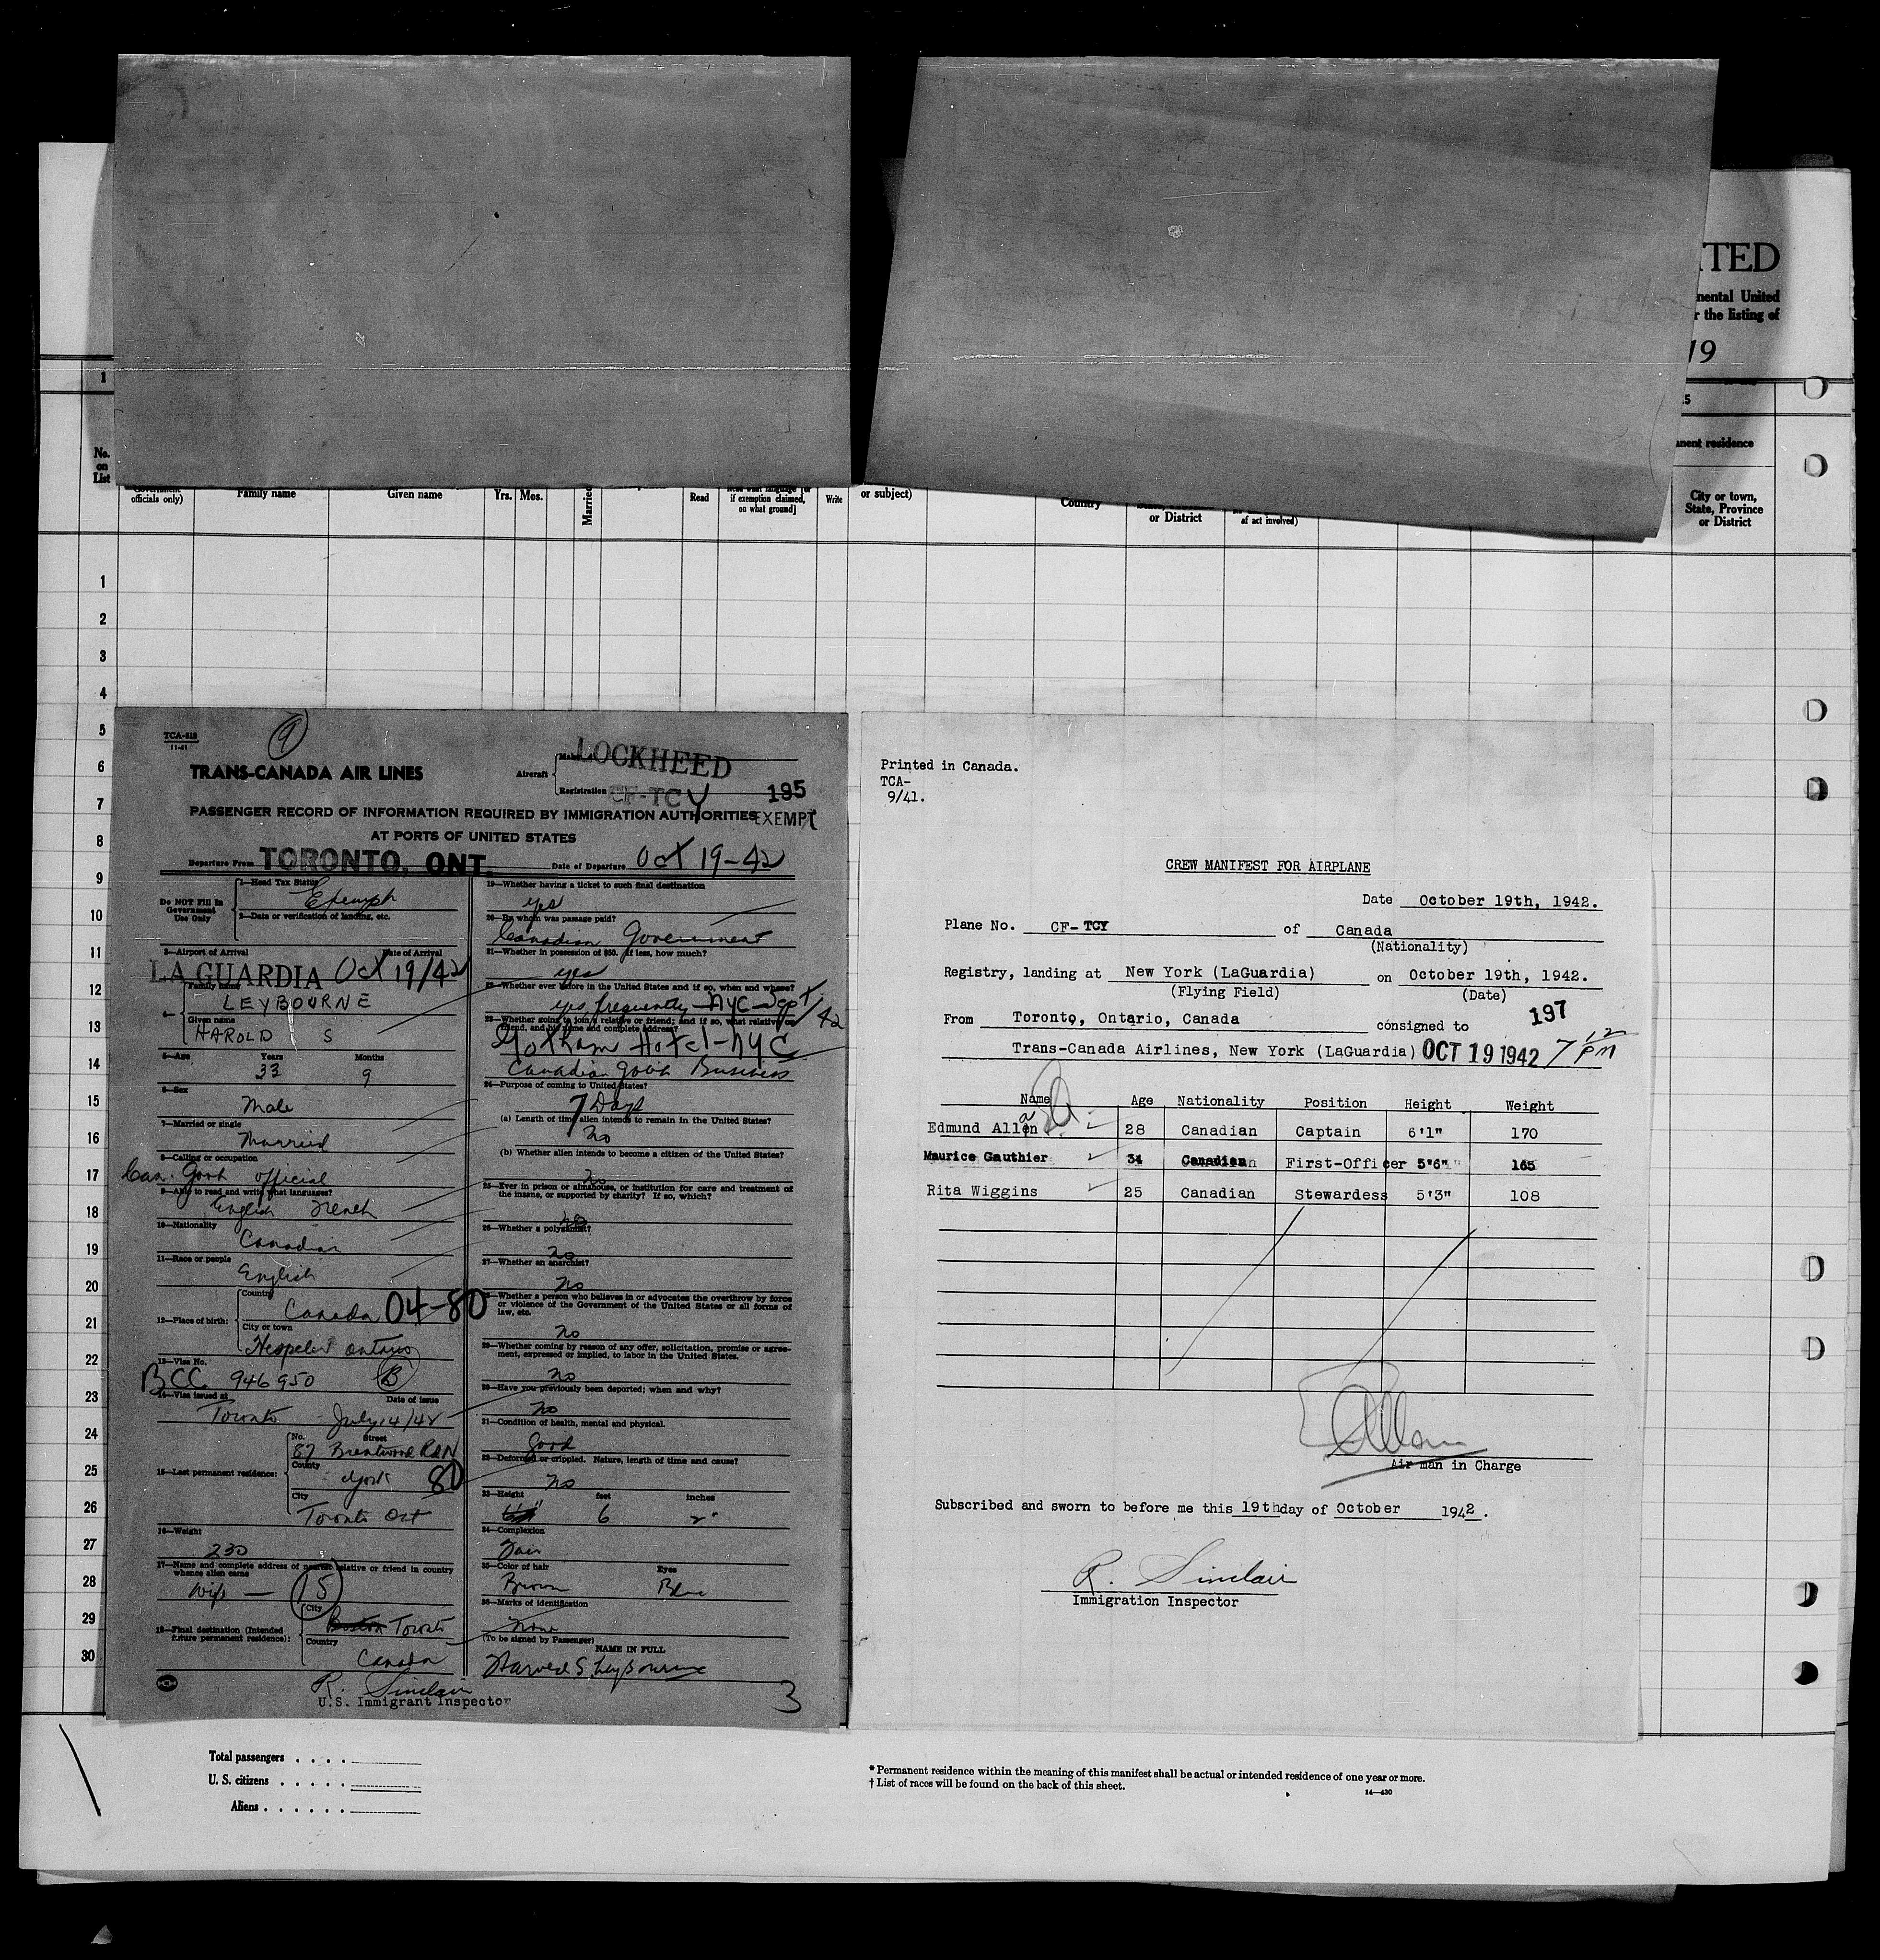 ITED
nental United
r the listing of
19
1
5
No.
on
List
nent residence
officials only)
Family name
Given name
Yrs.
Mos.
Married
Read
if exemption claimed,
on what ground]
Write
or subject)
Country
or District
of act involved)
City or town,
State, Province
or District
1
2
3
4
5
6
7
8
9
10
11
12
13
14
15
16
17
18
19
20
21
22
23
24
25
26
27
28
29
30
TCA-518
11-41
9
TRANS-CANADA AIR LINES
Aircraft
LOCKHEED
Registration CF-TCY
195
PASSENGER RECORD OF INFORMATION REQUIRED BY IMMIGRATION AUTHORITIES
EXEMPT
AT PORTS OF UNITED STATES
Departure From TORONTO, ONT.
Date of Departure Oct 19-42
Do NOT Fill In
Government
Use Only
1—Head Tax Status
Exempt
2—Date or verification of landing, etc.
3—Airport of Arrival
Date of Arrival
LA GUARDIA Oct 19/42
4—
Family name
LEYBOURNE
Given name
HAROLD S
5—Age
Years
Months
33
9
6—Sex
Male
7—Married or single
Married
8—Calling or occupation
Can. Govt official
9—Able to read and write what languages?
English French
10—Nationality
Canadian
11—Race or people
English
12—Place of birth:
Country
Canada 04-80
City or town
Hespeler Ontario
13—Visa No.
BCC 946950 B
14—Visa issued at
Date of issue
Toronto July 14/42
15—Last permanent residence:
No.
Street
87 Brentwood Rd N
County
York 80
City
Toronto Ont
16—Weight
230
17—Name and complete address of nearest relative or friend in country
whence alien came
Wife — 15
18—Final destination (Intended
future permanent residence):
City
Boston Toronto
Country
Canada
R. Sinclair
U.S. Immigrant Inspector
19—Whether having a ticket to such final destination
yes
20—By whom was passage paid?
Canadian Government
21—Whether in possession of $50. If less, how much?
yes
22—Whether ever before in the United States and if so, when and where?
yes frequently NYC Sept/42
23—Whether going to join a relative or friend; and if so, what relative or
friend, and his name and complete address?
Gotham Hotel - NYC
Canadian Govt Business
24—Purpose of coming to United States?
7 Days
(a) Length of time alien intends to remain in the United States?
no
(b) Whether alien intends to become a citizen of the United States?
no
25—Ever in prison or almshouse, or institution for care and treatment of
the insane, or supported by charity? If so, which?
no
26—Whether a polygamist?
no
27—Whether an anarchist?
no
28—Whether a person who believes in or advocates the overthrow by force
or violence of the Government of the United States or all forms of
law, etc.
no
29—Whether coming by reason of any offer, solicitation, promise or agree-
ment, expressed or implied, to labor in the United States.
no
30—Have you previously been deported; when and why?
no
31—Condition of health, mental and physical.
good
32—Deformed or crippled. Nature, length of time and cause?
no
33—Height
feet
inches
6 2"
34—Complexion
Fair
35—Color of hair
Eyes
Brown Blue
36—Marks of identification
None
(To be signed by Passenger)
NAME IN FULL
Harold S. Leybourne
3
Printed in Canada.
TCA-
9/41.
CREW MANIFEST FOR AIRPLANE
Date October 19th, 1942.
Plane No. CF-TCY of Canada
(Nationality)
Registry, landing at New York (LaGuardia) on October 19th, 1942.
(Flying Field)
(Date)
197
From Toronto, Ontario, Canada consigned to
Trans-Canada Airlines, New York (LaGuardia) OCT 19 1942 7 12 PM
Name Age Nationality Position Height Weight
a
Edmund Allen 28 Canadian Captain 6'1" 170
Maurice Gauthier 34 Canadian First-Officer 5'6" 165
Rita Wiggins 25 Canadian Stewardess 5'3" 108
Air man in Charge
Subscribed and sworn to before me this 19th day of October 1942.
R. Sinclair
Immigration Inspector
Total passengers . . . .
U. S. citizens . . . . .
Aliens . . . . . .
* Permanent residence within the meaning of this manifest shall be actual or intended residence of one year or more.
† List of races will be found on the back of this sheet.
14—430